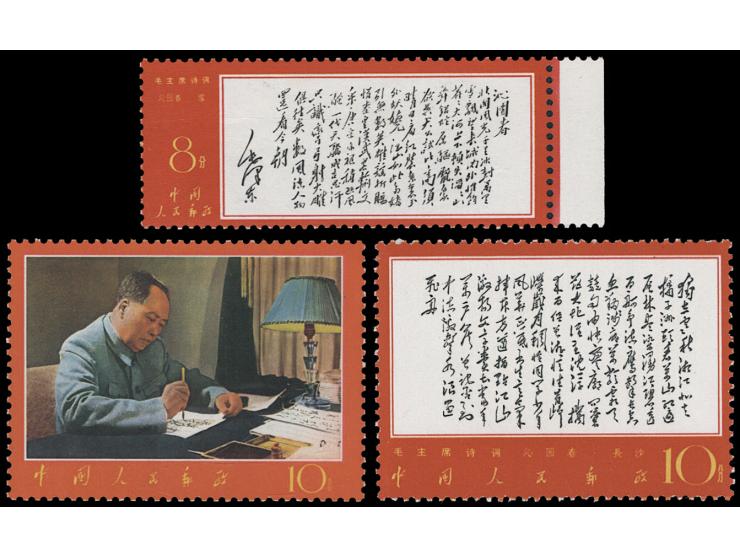 毛主席诗词
沁园春 雪
8分
中国
人民邮政
沁园春
北国风光千里冰封万里
雪飘望长城内外惟余
莽莽大河上下顿失滔滔山
舞银蛇原驱
欲与天公试比高须
晴日看红装素裹分
外妖娆江山如此多娇
引无数英雄竞折腰
惜秦皇汉武略输文
采唐宗宋祖稍逊风
骚一代天骄成吉思汗
只识弯弓射大雕
俱往矣数风流人物
还看今朝
毛泽东
中国人民邮政
10分
独立寒秋湘江北去
橘子洲头看万山红遍
层林尽染漫江碧透
百舸争流鹰击长空
鱼翔浅底万类霜天
竞自由怅寥廓问苍
茫大地谁主沉浮携
来百侣曾游忆往昔峥
嵘岁月稠恰同学少年
风华正茂书生意气
挥斥方遒指点江山
激扬文字粪土当年
万户侯曾记否到
中流击水浪遏
飞舟
毛主席诗词 沁园春 长沙
中国人民邮政
10分